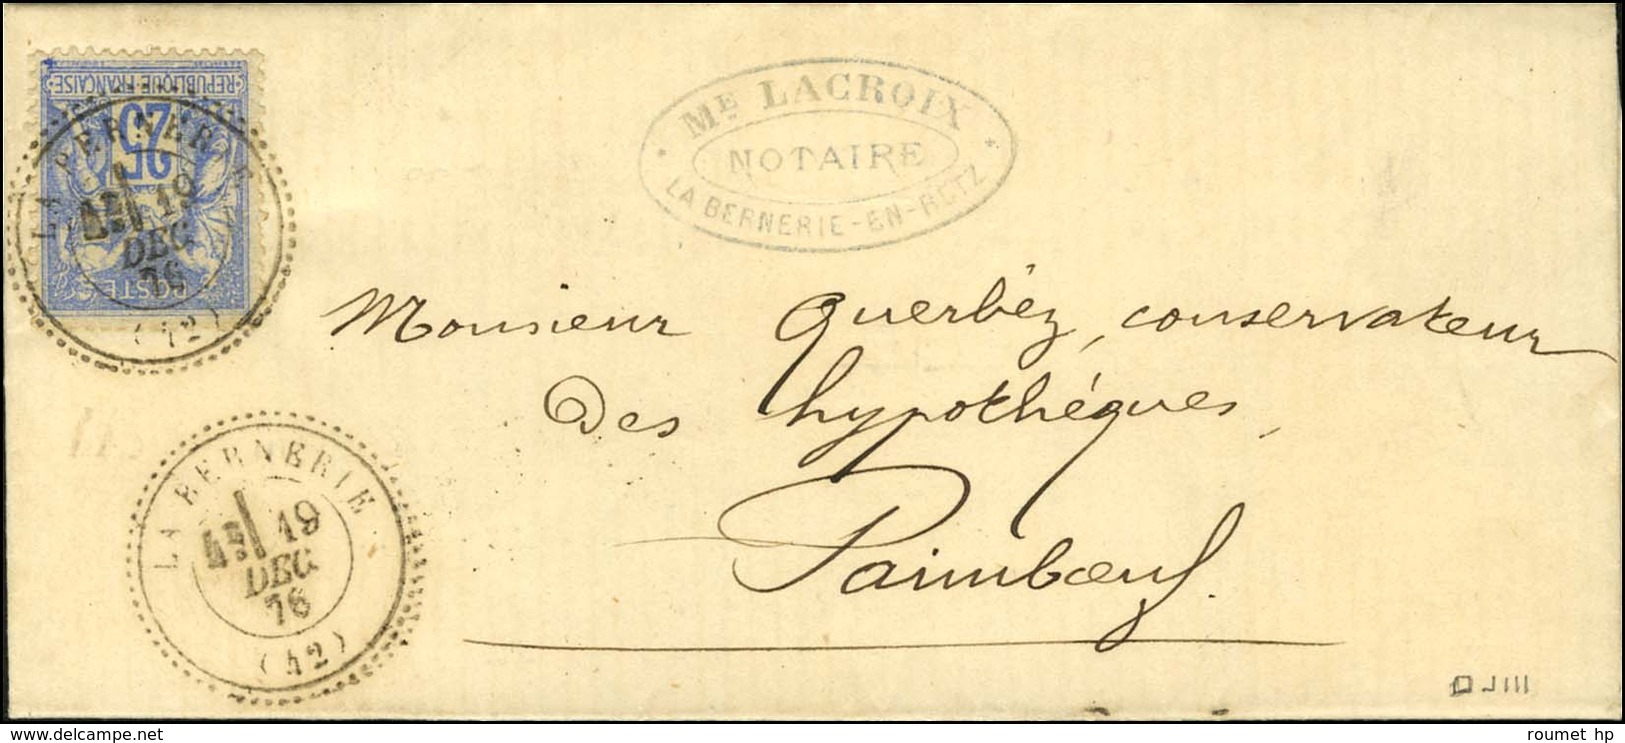 REPUBLIQUE FRANÇAISE
25
POSTE
LA BERNERIE
19
DEC
78
(42)
Me LACROIX
NOTAIRE
LA BERNERIE-EN-RETZ
Monsieur Querbéz, conservateur
Des hypothéques,
Paimbœuf.
LA BERNERIE
19
DEC
78
(42)
roumet hp